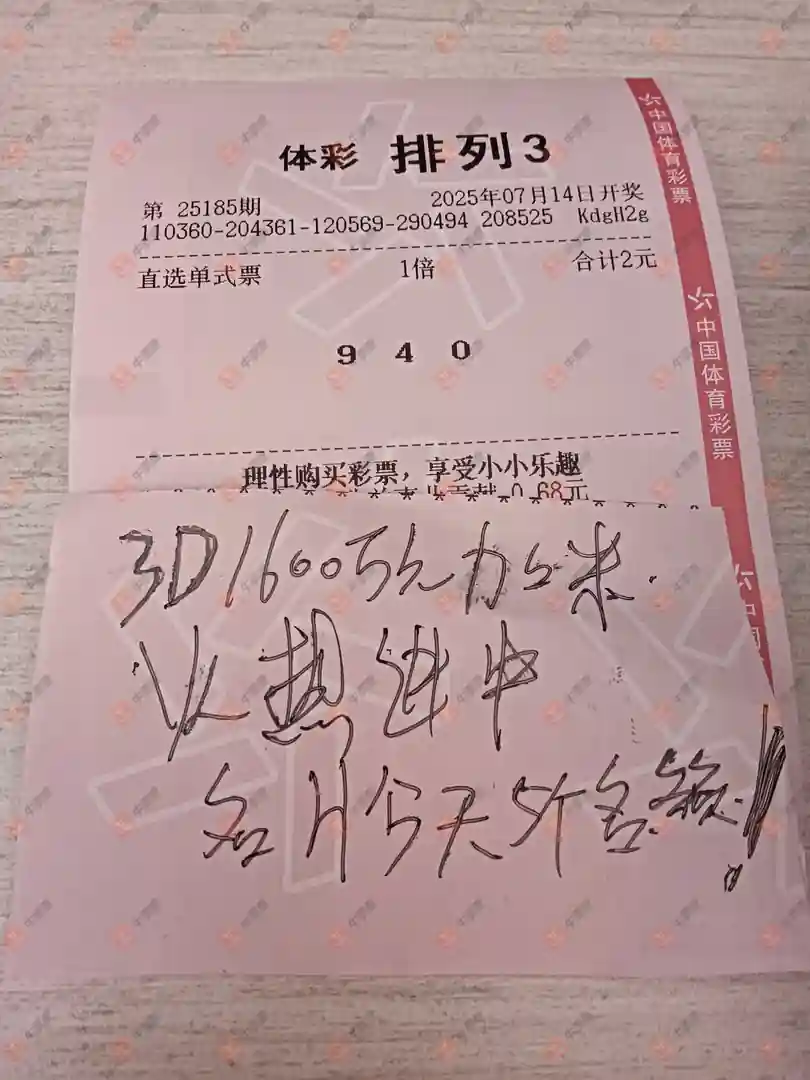 体彩 排列3
第 25185期 2025年07月14日开奖
110360-204361-120569-290494 208525 KdgH2g
直选单式票 1倍 合计2元
9 4 0
理性购买彩票，享受小小乐趣
0.68元
3D1600万元加米.
火热连中
名片今天5个名额!
中国体育彩票
中国体育彩票
中国